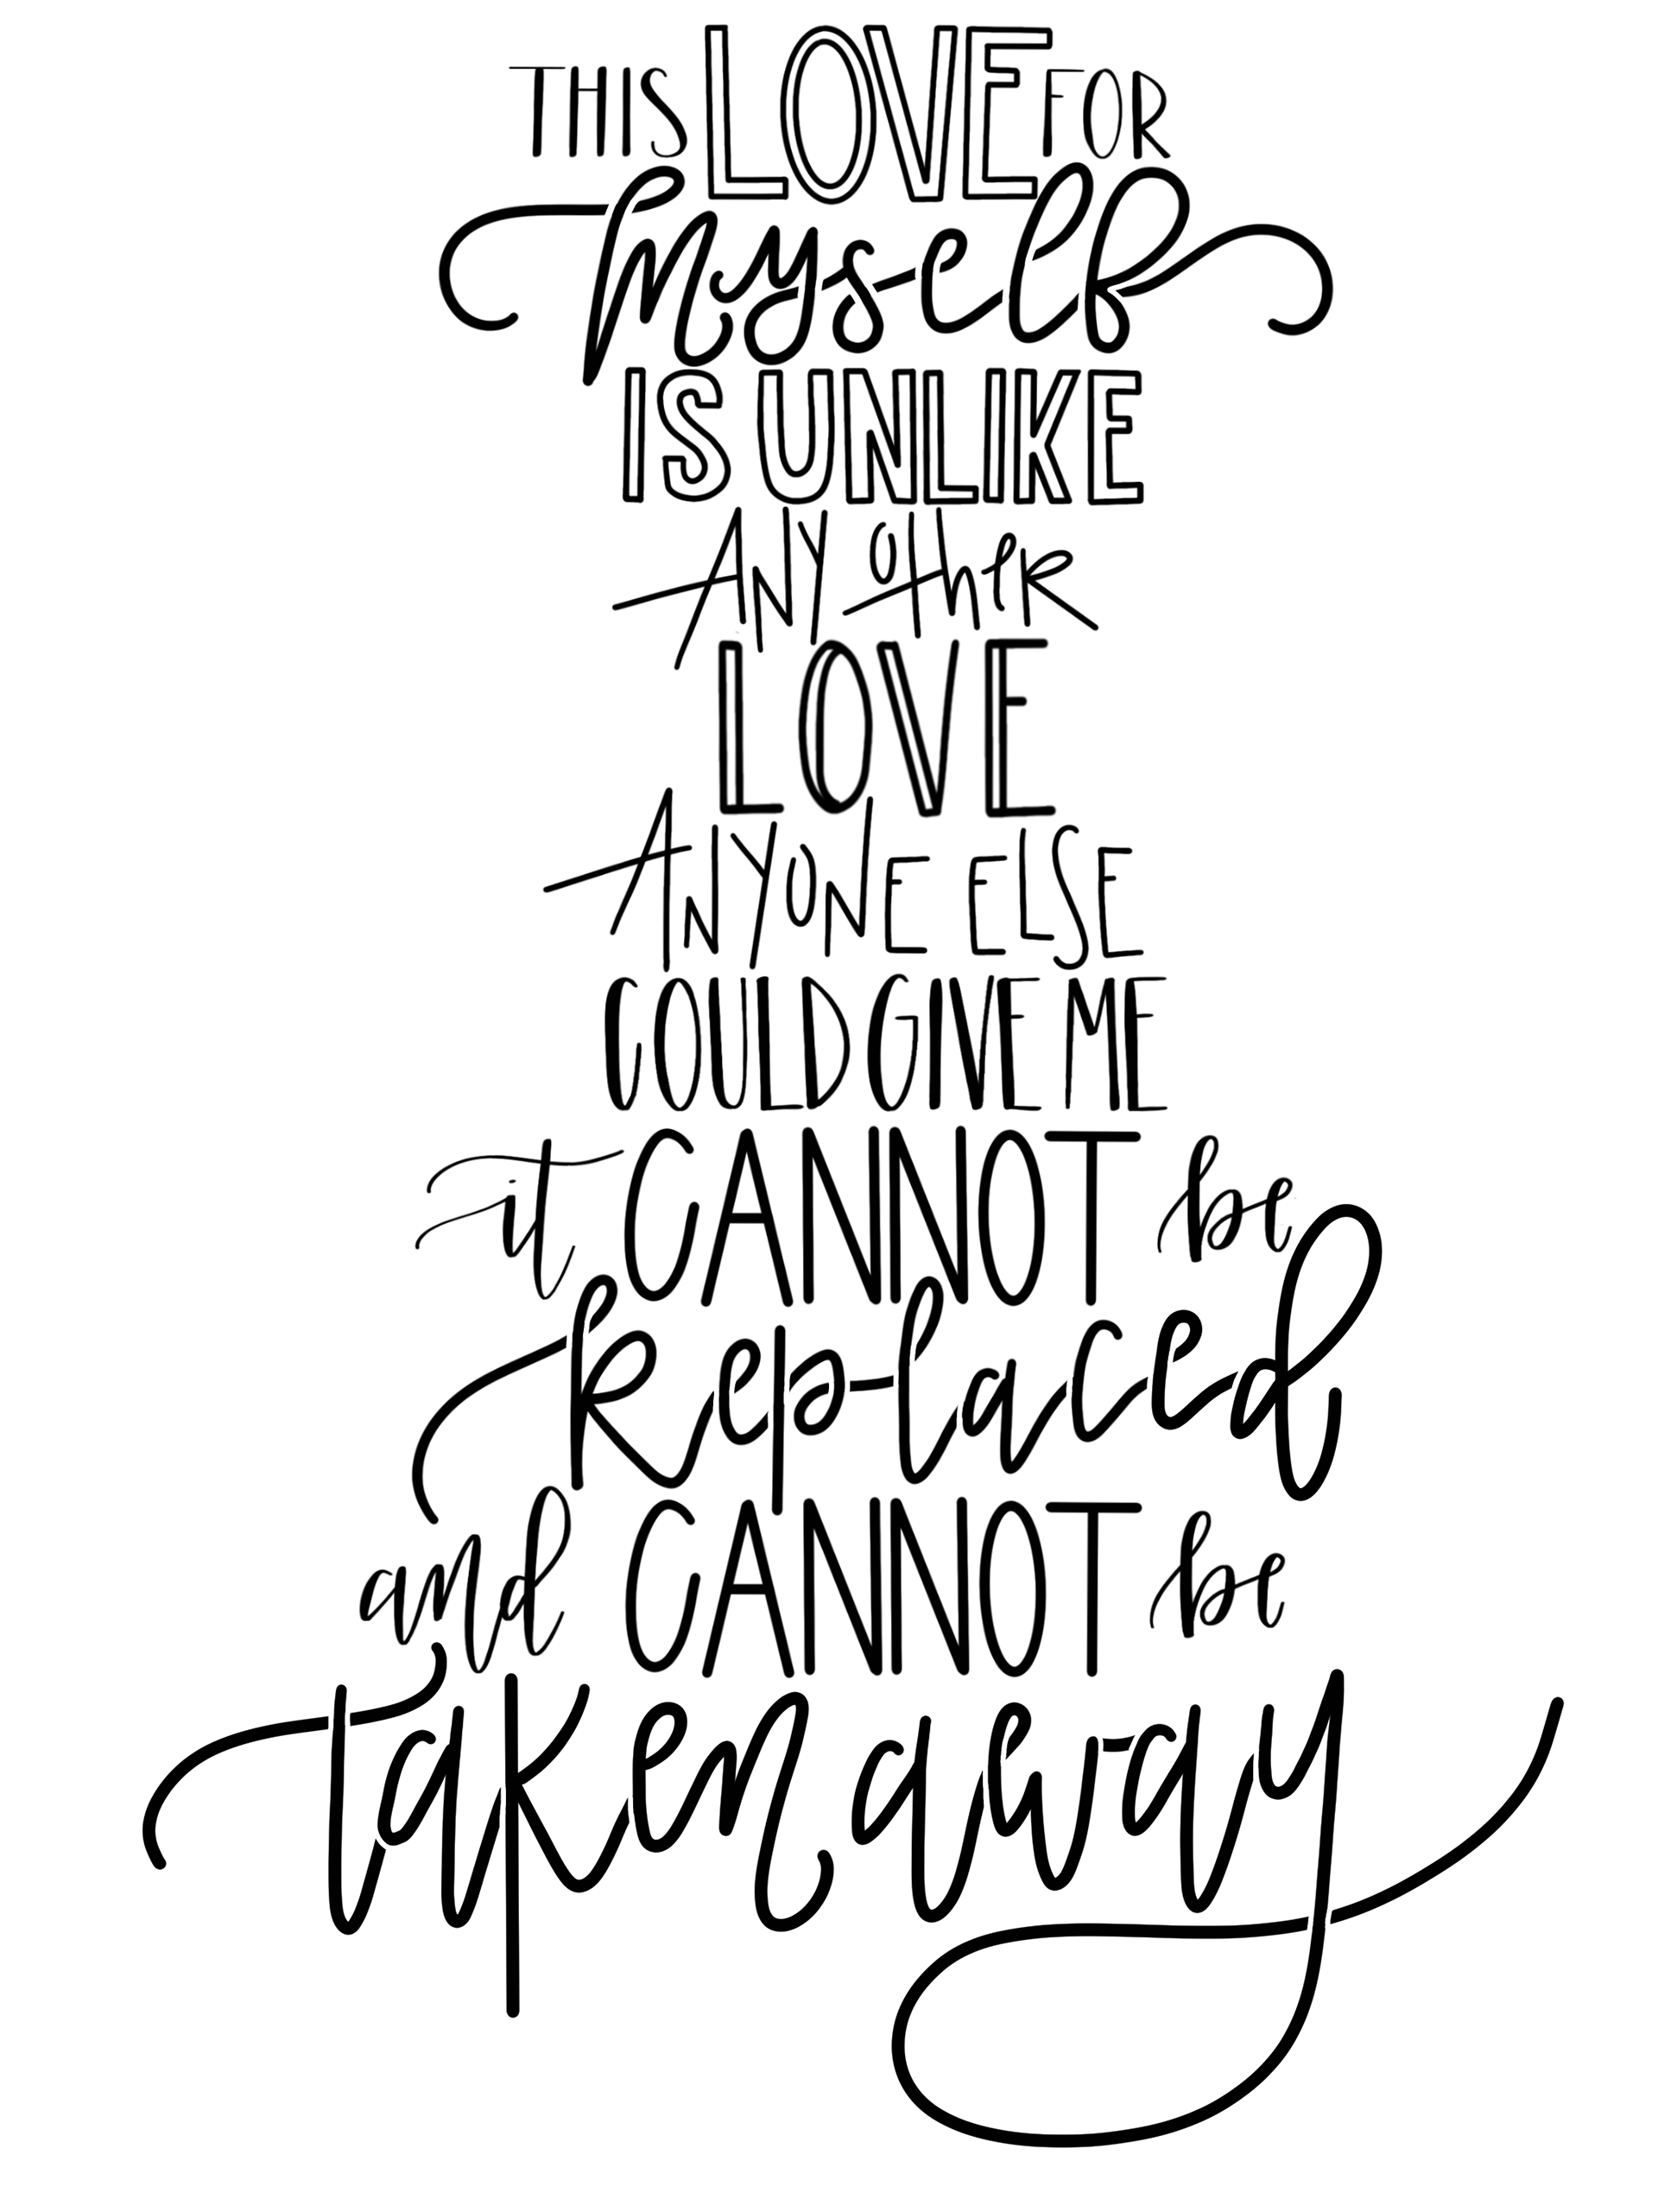 THIS LOVE FOR
myself
IS UNLIKE
ANY OtHER
LOVE
ANYONE ELSE
COULD GIVE ME
it CANNOT be
Replaced
and CANNOT be
taken away